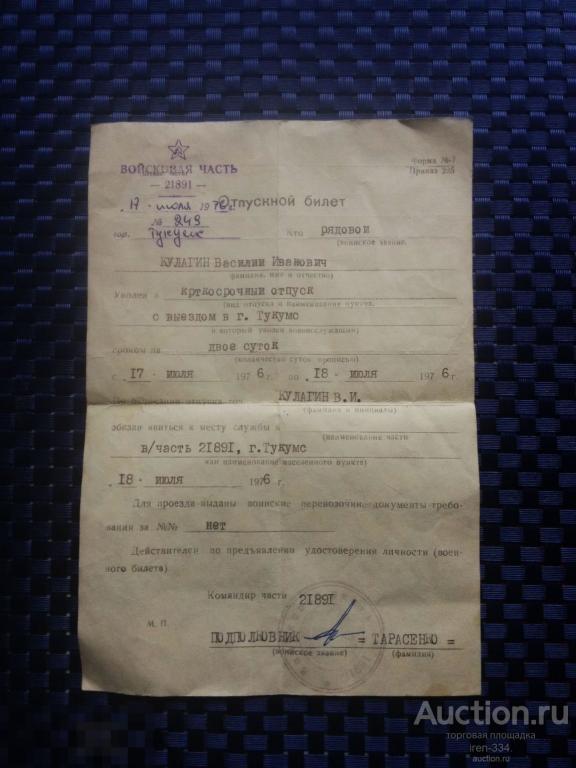 ВОЙСКОВАЯ ЧАСТЬ
— 21891 —
Форма №-7
Приказ 225
17 · июля 1976
Отпускной билет
№ 249
гор. Тукумс
Кто рядовой
(воинское звание,
КУЛАГИН Василий Иванович
фамилия, имя и отчество)
Уволен в крткосрочный отпуск
(вид отпуска и наименование пункта,
с выездом в г. Тукумс
в который уволен военнослужащий)
сроком на двое суток
(количество суток прописью)
с 17 · июля 1976 г. по 18 · июля 1976 г.
По окончании отпуска тов. КУЛАГИН В.И.
(фамилия и инициалы)
обязан явиться к месту службы в
(наименование части
в/часть 21891, г.Тукумс
или наименование населенного пункта)
18 · июля 1976 г.
Для проезда выданы воинские перевозочные документы требо-
вания за №№ нет
Действителен по предъявлении удостоверения личности (воен-
ного билета)
Командир части 21891
М. П.
ПОДПОЛКОВНИК = ТАРАСЕНКО =
(воинское звание) (фамилия)
Auction.ru
торговая площадка
iren-334.
auction.ru